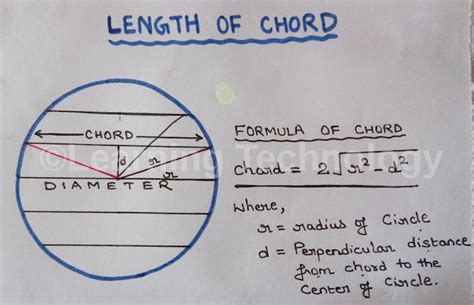 LENGTH OF CHORD
CHORD
d
r
r
DIAMETER
©Learning Technology
FORMULA OF CHORD
Chord = 2√r²-d²
Where,
r = radius of Circle
d = Perpendicular distance
from chord to the
Center of Circle.